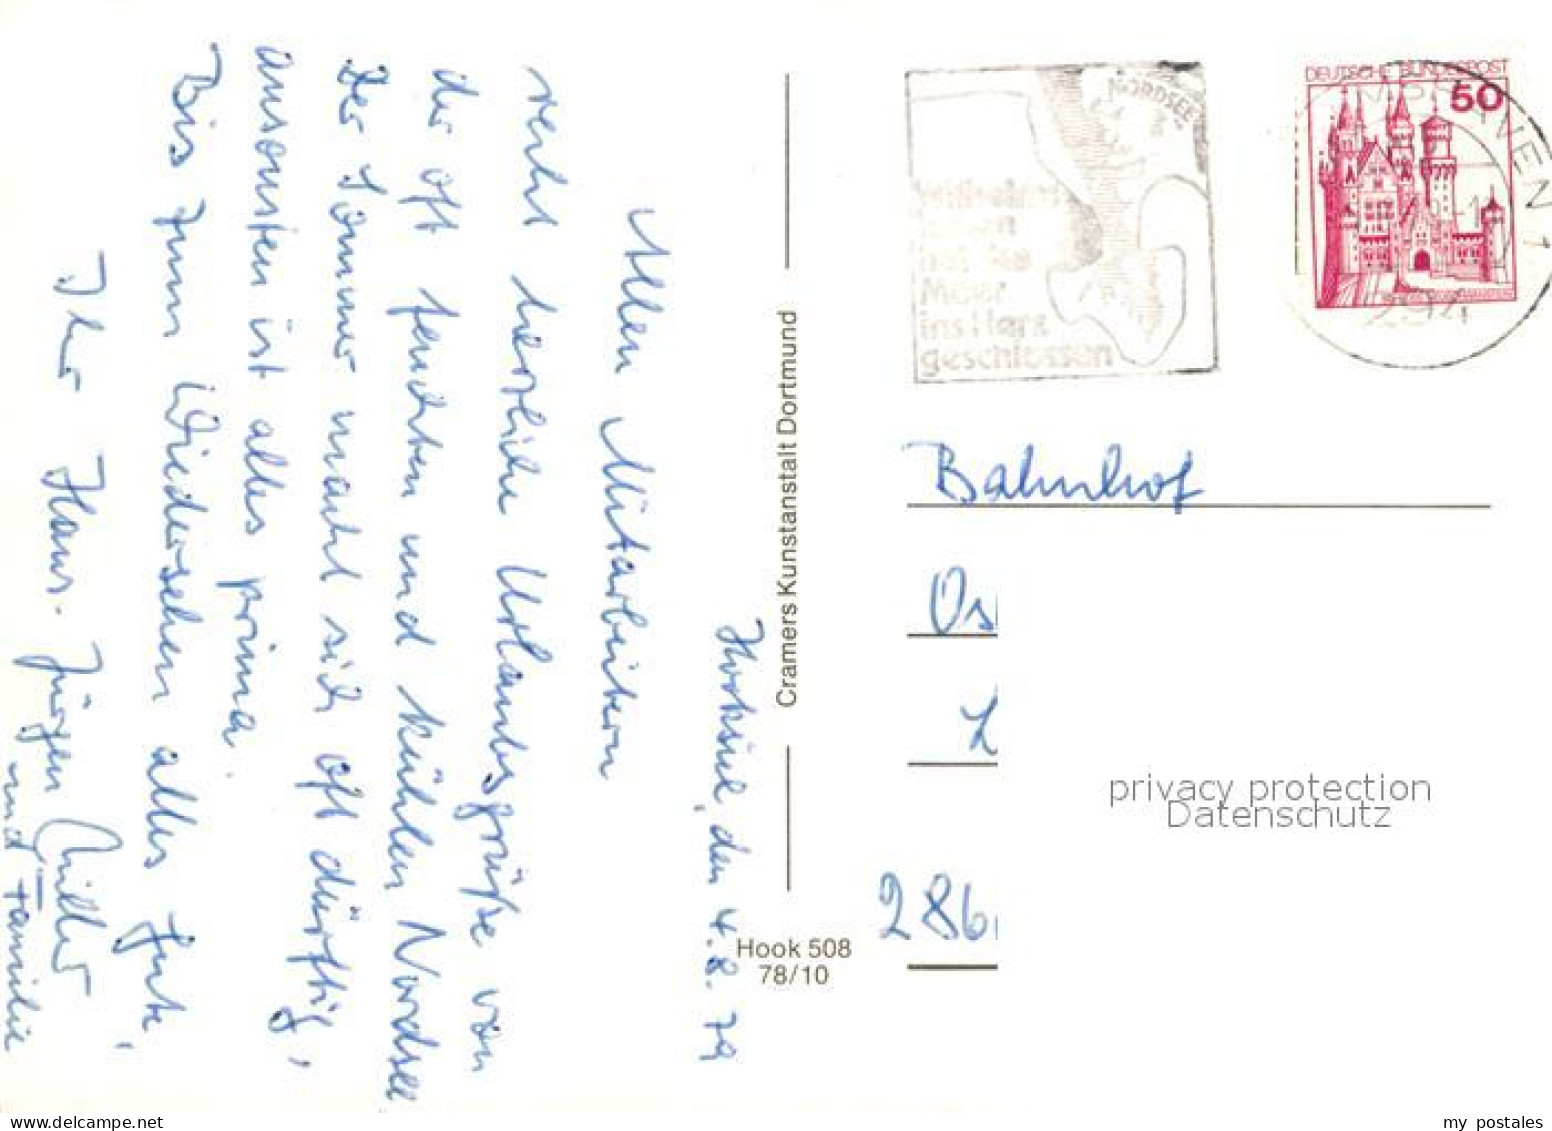 Hooksiel, den 4.8.79
Allen Mitarbeitern
recht herzliche Urlaubsgrüße von
der oft feuchten und kühlen Nordsee
Der Sommer macht sich oft dürftig,
ansonsten ist alles prima.
Bis zum Wiedersehen alles Gute,
Ihr Hans-Jürgen Müller
und Familie
Cramers Kunstanstalt Dortmund
Hook 508
78/10
NORDSEE
Wilhelms
haven
hat das
Meer
ins Herz
geschlossen
DEUTSCHE BUNDESPOST
50
294
Bahnhof
Os
2 86
privacy protection
Datenschutz
www.delcampe.net
my_postales